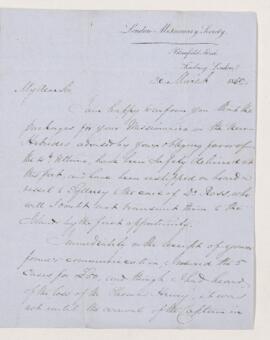 London Missionary Society,
Blomfield Street
Finsbury, London
20 March 186
My dear Sir
I am happy to inform you that the
packages for your Missionaries in the New
Hebrides advised by your obliging favor of
the 4th have been safely delivered at
this port and have been shipped on board a
vessel to Sydney to the care of Dr. Ross, who
will I doubt not transmit them to the
Island by the first opportunity.
Immediately on the receipt of your
former communication I the 5
cases for £50, and though I had heard
of the loss of the Henry, it was
not until the arrival of the Captain in